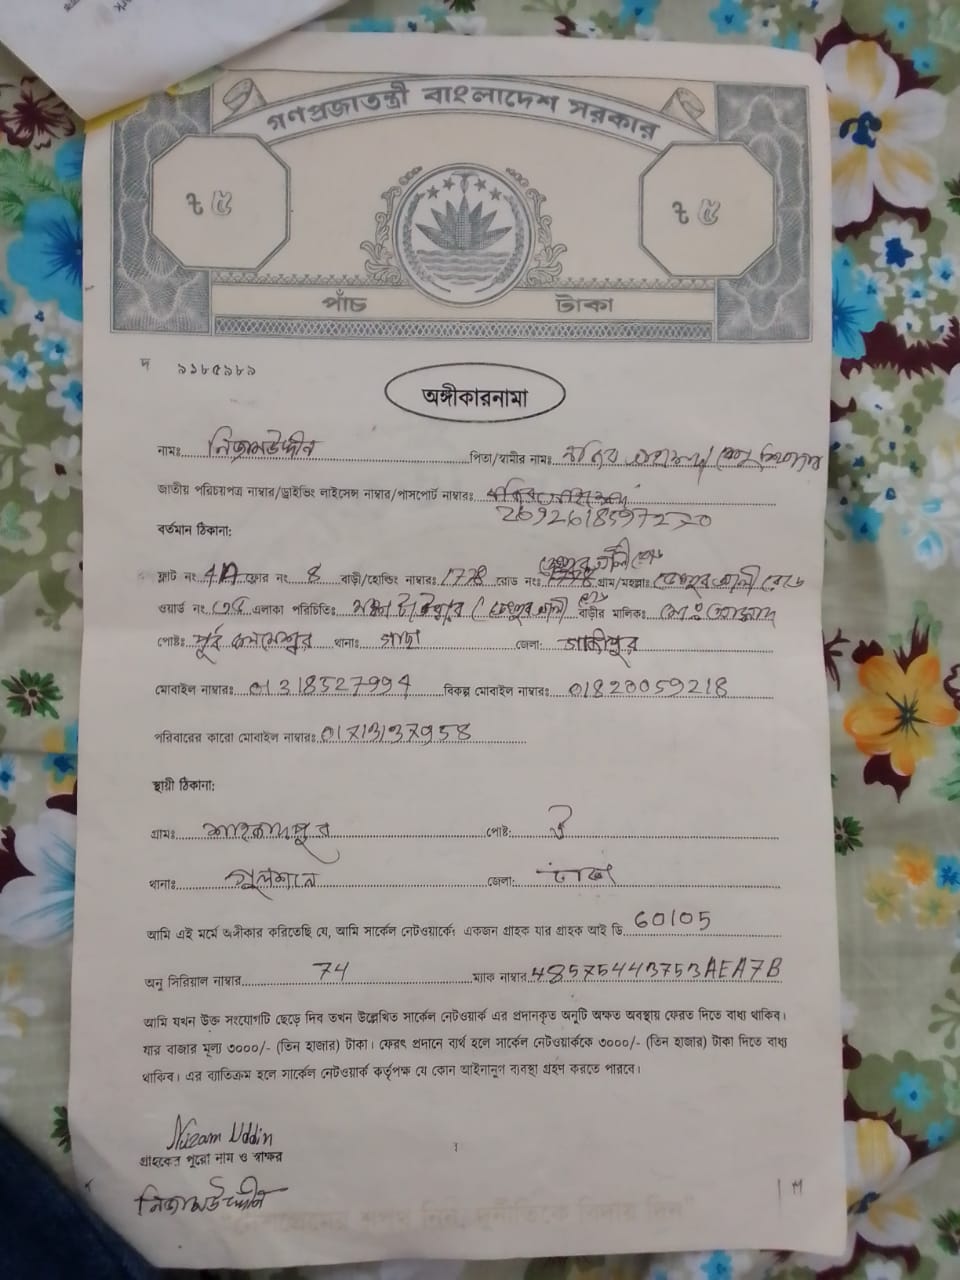 গণপ্রজাতন্ত্রী বাংলাদেশ সরকার
৳ ৫ ৳ ৫
পাঁচ টাকা
দ ৯১৮৫৯৮৯
অঙ্গীকারনামা
নামঃ নিজামউদ্দীন পিতা/স্বামীর নামঃ
জাতীয় পরিচয়পত্র নাম্বার/ড্রাইভিং লাইসেন্স নাম্বার/পাসপোর্ট নাম্বারঃ
বর্তমান ঠিকানা:
ফ্লাট নং 4A ফ্লোর নং 8 বাড়ী/হোল্ডিং নাম্বারঃ 1778 রোড নং গ্রাম/মহল্লাঃ
ওয়ার্ড নং এলাকা পরিচিতিঃ বাড়ীর মালিকঃ
পোষ্টঃ পূর্ব কলমেশ্বর থানাঃ গাছা জেলা: গাজীপুর
মোবাইল নাম্বারঃ 01318527994 বিকল্প মোবাইল নাম্বারঃ 01820059218
পরিবারের কারো মোবাইল নাম্বারঃ 01713137958
স্থায়ী ঠিকানা:
গ্রামঃ শাহজাদপুর পোষ্ট: ঐ
থানাঃ গুলশান জেলা: ঢাকা
আমি এই মর্মে অঙ্গীকার করিতেছি যে, আমি সার্কেল নেটওয়ার্কে একজন গ্রাহক যার গ্রাহক আই ডি 60105
অনু সিরিয়াল নাম্বার 74 ম্যাক নাম্বার 48575443753AEA7B
আমি যখন উক্ত সংযোগটি ছেড়ে দিব তখন উল্লেখিত সার্কেল নেটওয়ার্ক এর প্রদানকৃত অনুটি অক্ষত অবস্থায় ফেরত দিতে বাধ্য থাকিব।
যার বাজার মূল্য ৩০০০/- (তিন হাজার) টাকা। ফেরৎ প্রদানে ব্যর্থ হলে সার্কেল নেটওয়ার্ককে ৩০০০/- (তিন হাজার) টাকা দিতে বাধ্য
থাকিব। এর ব্যতিক্রম হলে সার্কেল নেটওয়ার্ক কর্তৃপক্ষ যে কোন আইনানুগ ব্যবস্থা গ্রহণ করতে পারবে।
Nizam Uddin
গ্রাহকের পুরো নাম ও স্বাক্ষর
নিজামউদ্দীন